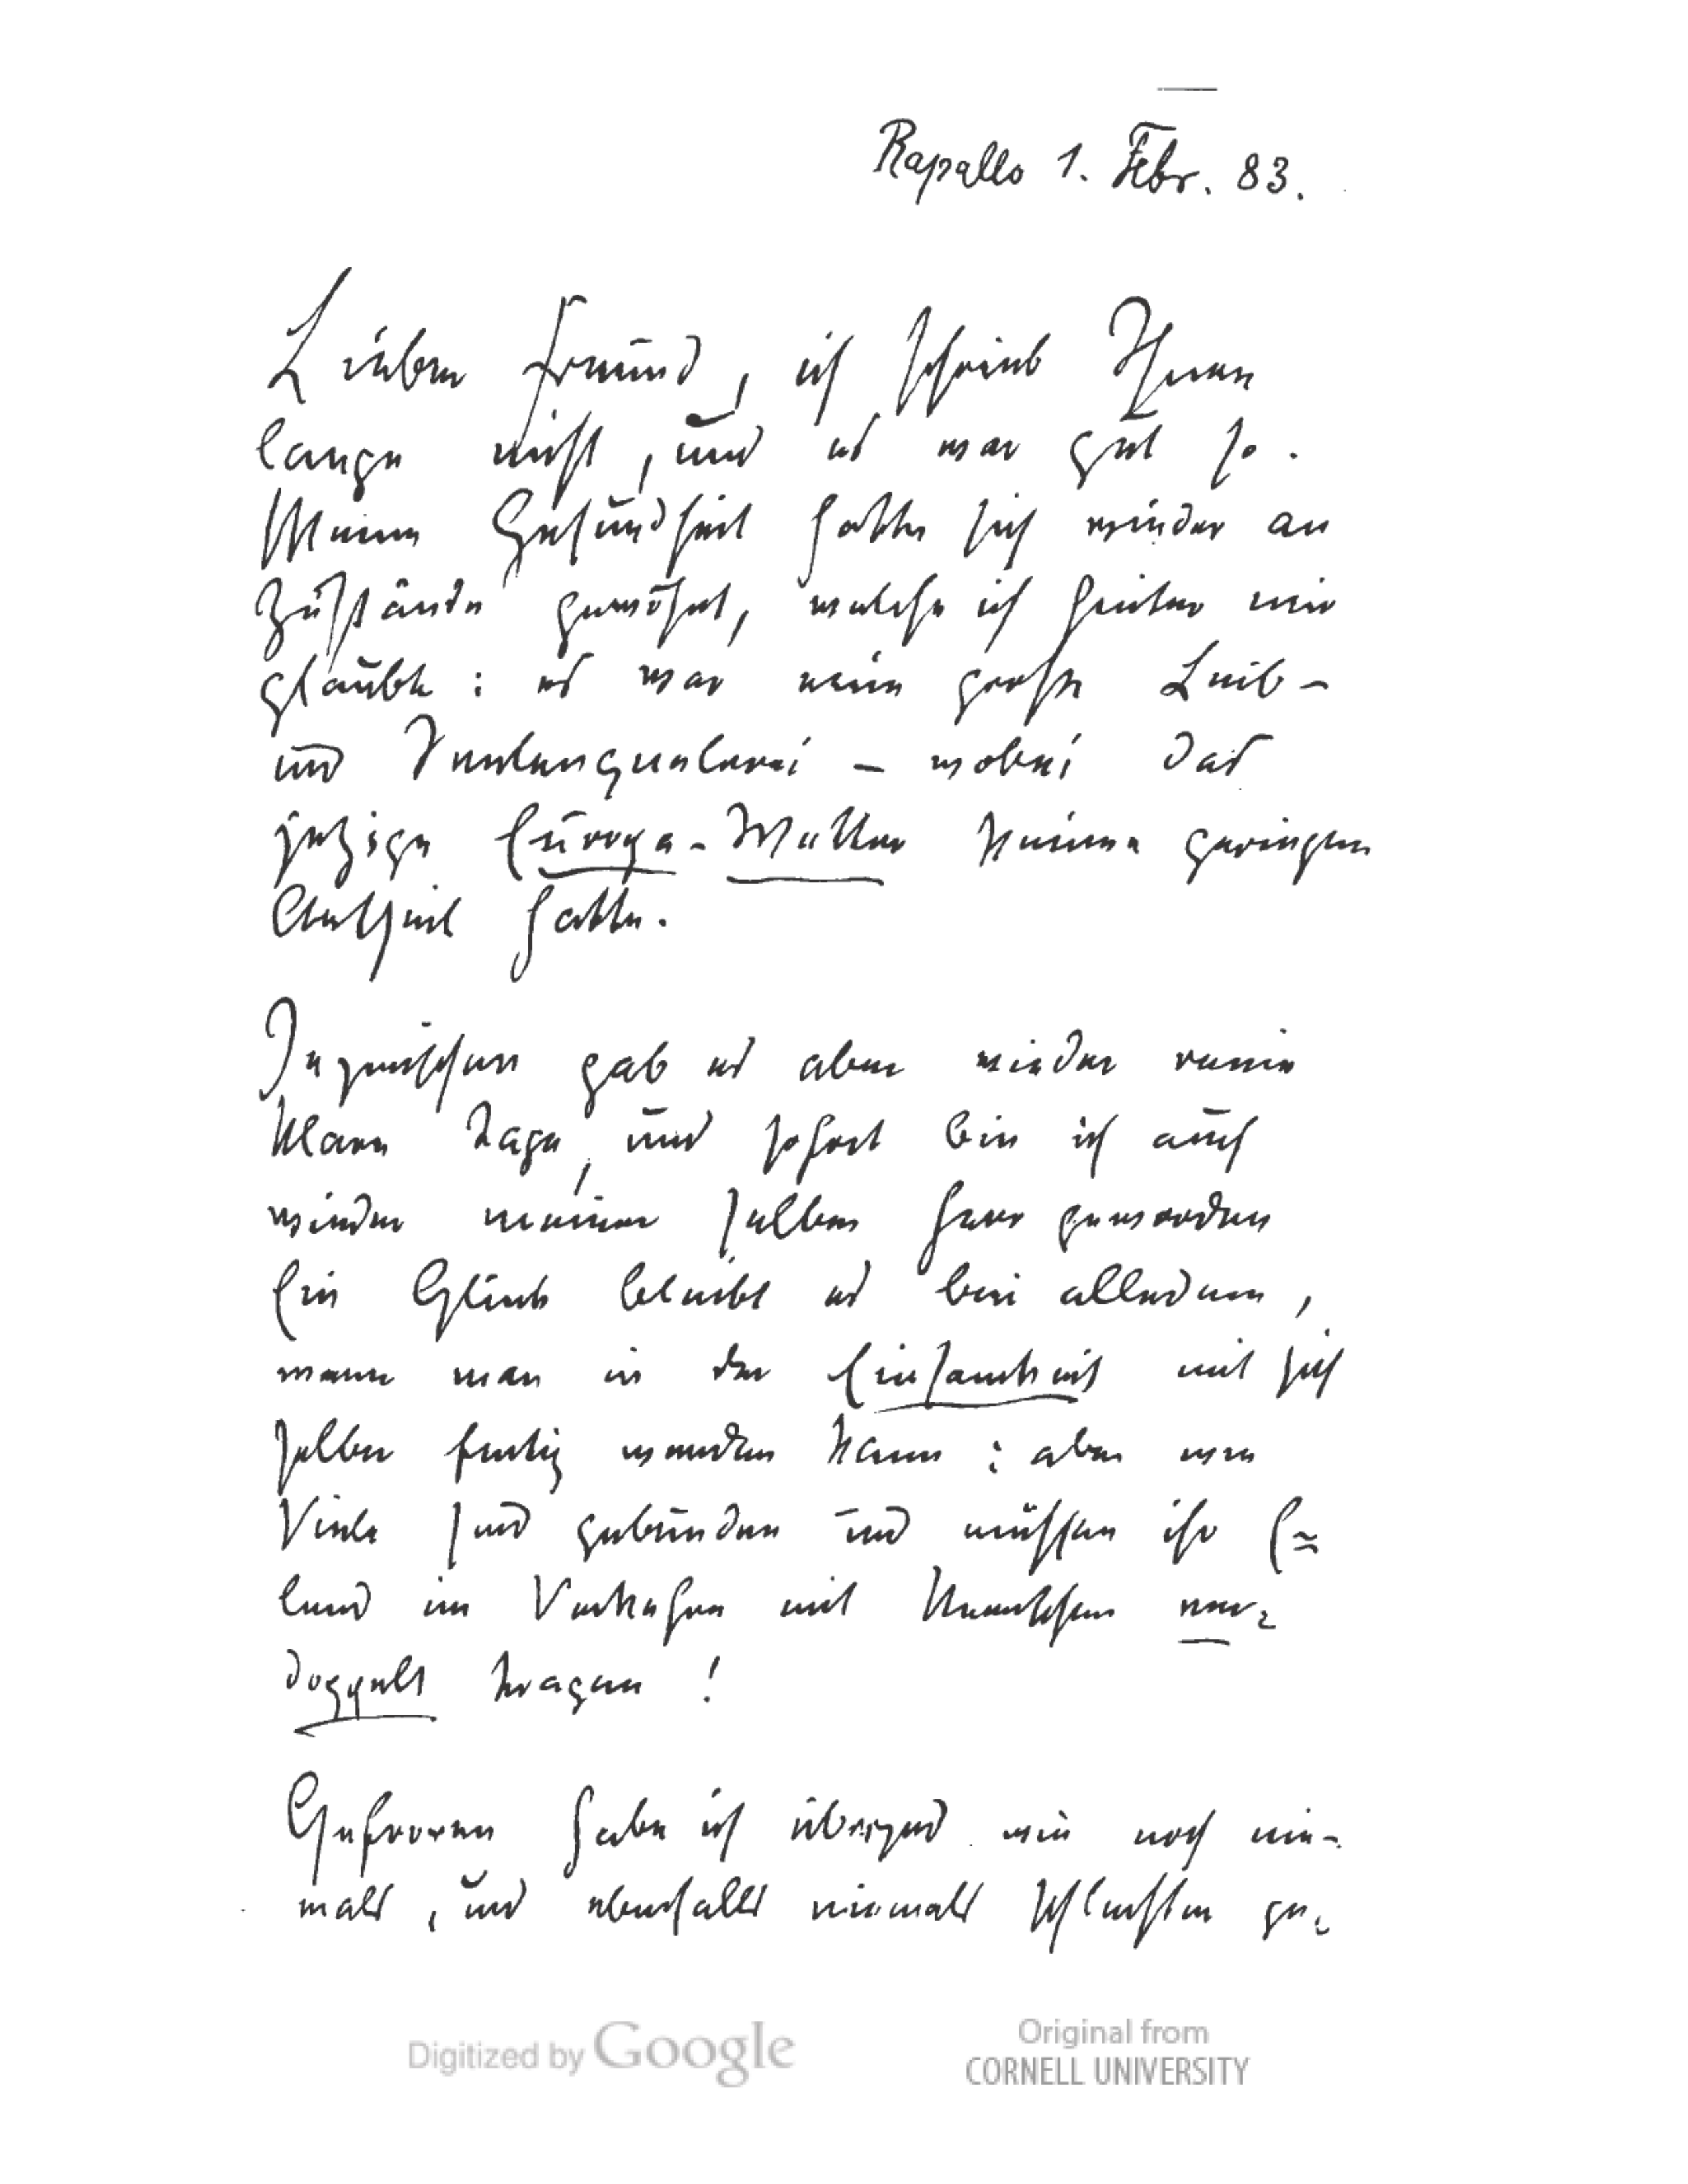 Rapallo 1. Febr. 83.
Lieber Freund, ich schrieb Ihnen
lange nicht, und es war gut so.
Meine Gesundheit hatte sich wieder an
Zustände gewöhnt, welche ich hinter mir
glaubte: es war eine große Leib-
und Seelenquälerei – wobei das
jetzige Europa-Wetter keinen geringen
Antheil hatte.
Inzwischen gab es aber wieder reine
klare Tage, und sofort bin ich auch
wieder meiner selber Herr geworden
Ein Glück bleibt es bei alledem,
wenn man in der Einsamkeit mit sich
selber fertig werden kann: aber wie
Viele sind gebunden und müssen ihr E=
lend im Verkehre mit Menschen ver=
doppelt tragen!
Gefroren habe ich übrigens wie noch nie-
mals, und ebenfalls niemals schlechter ge=
Digitized by Google
Original from
CORNELL UNIVERSITY